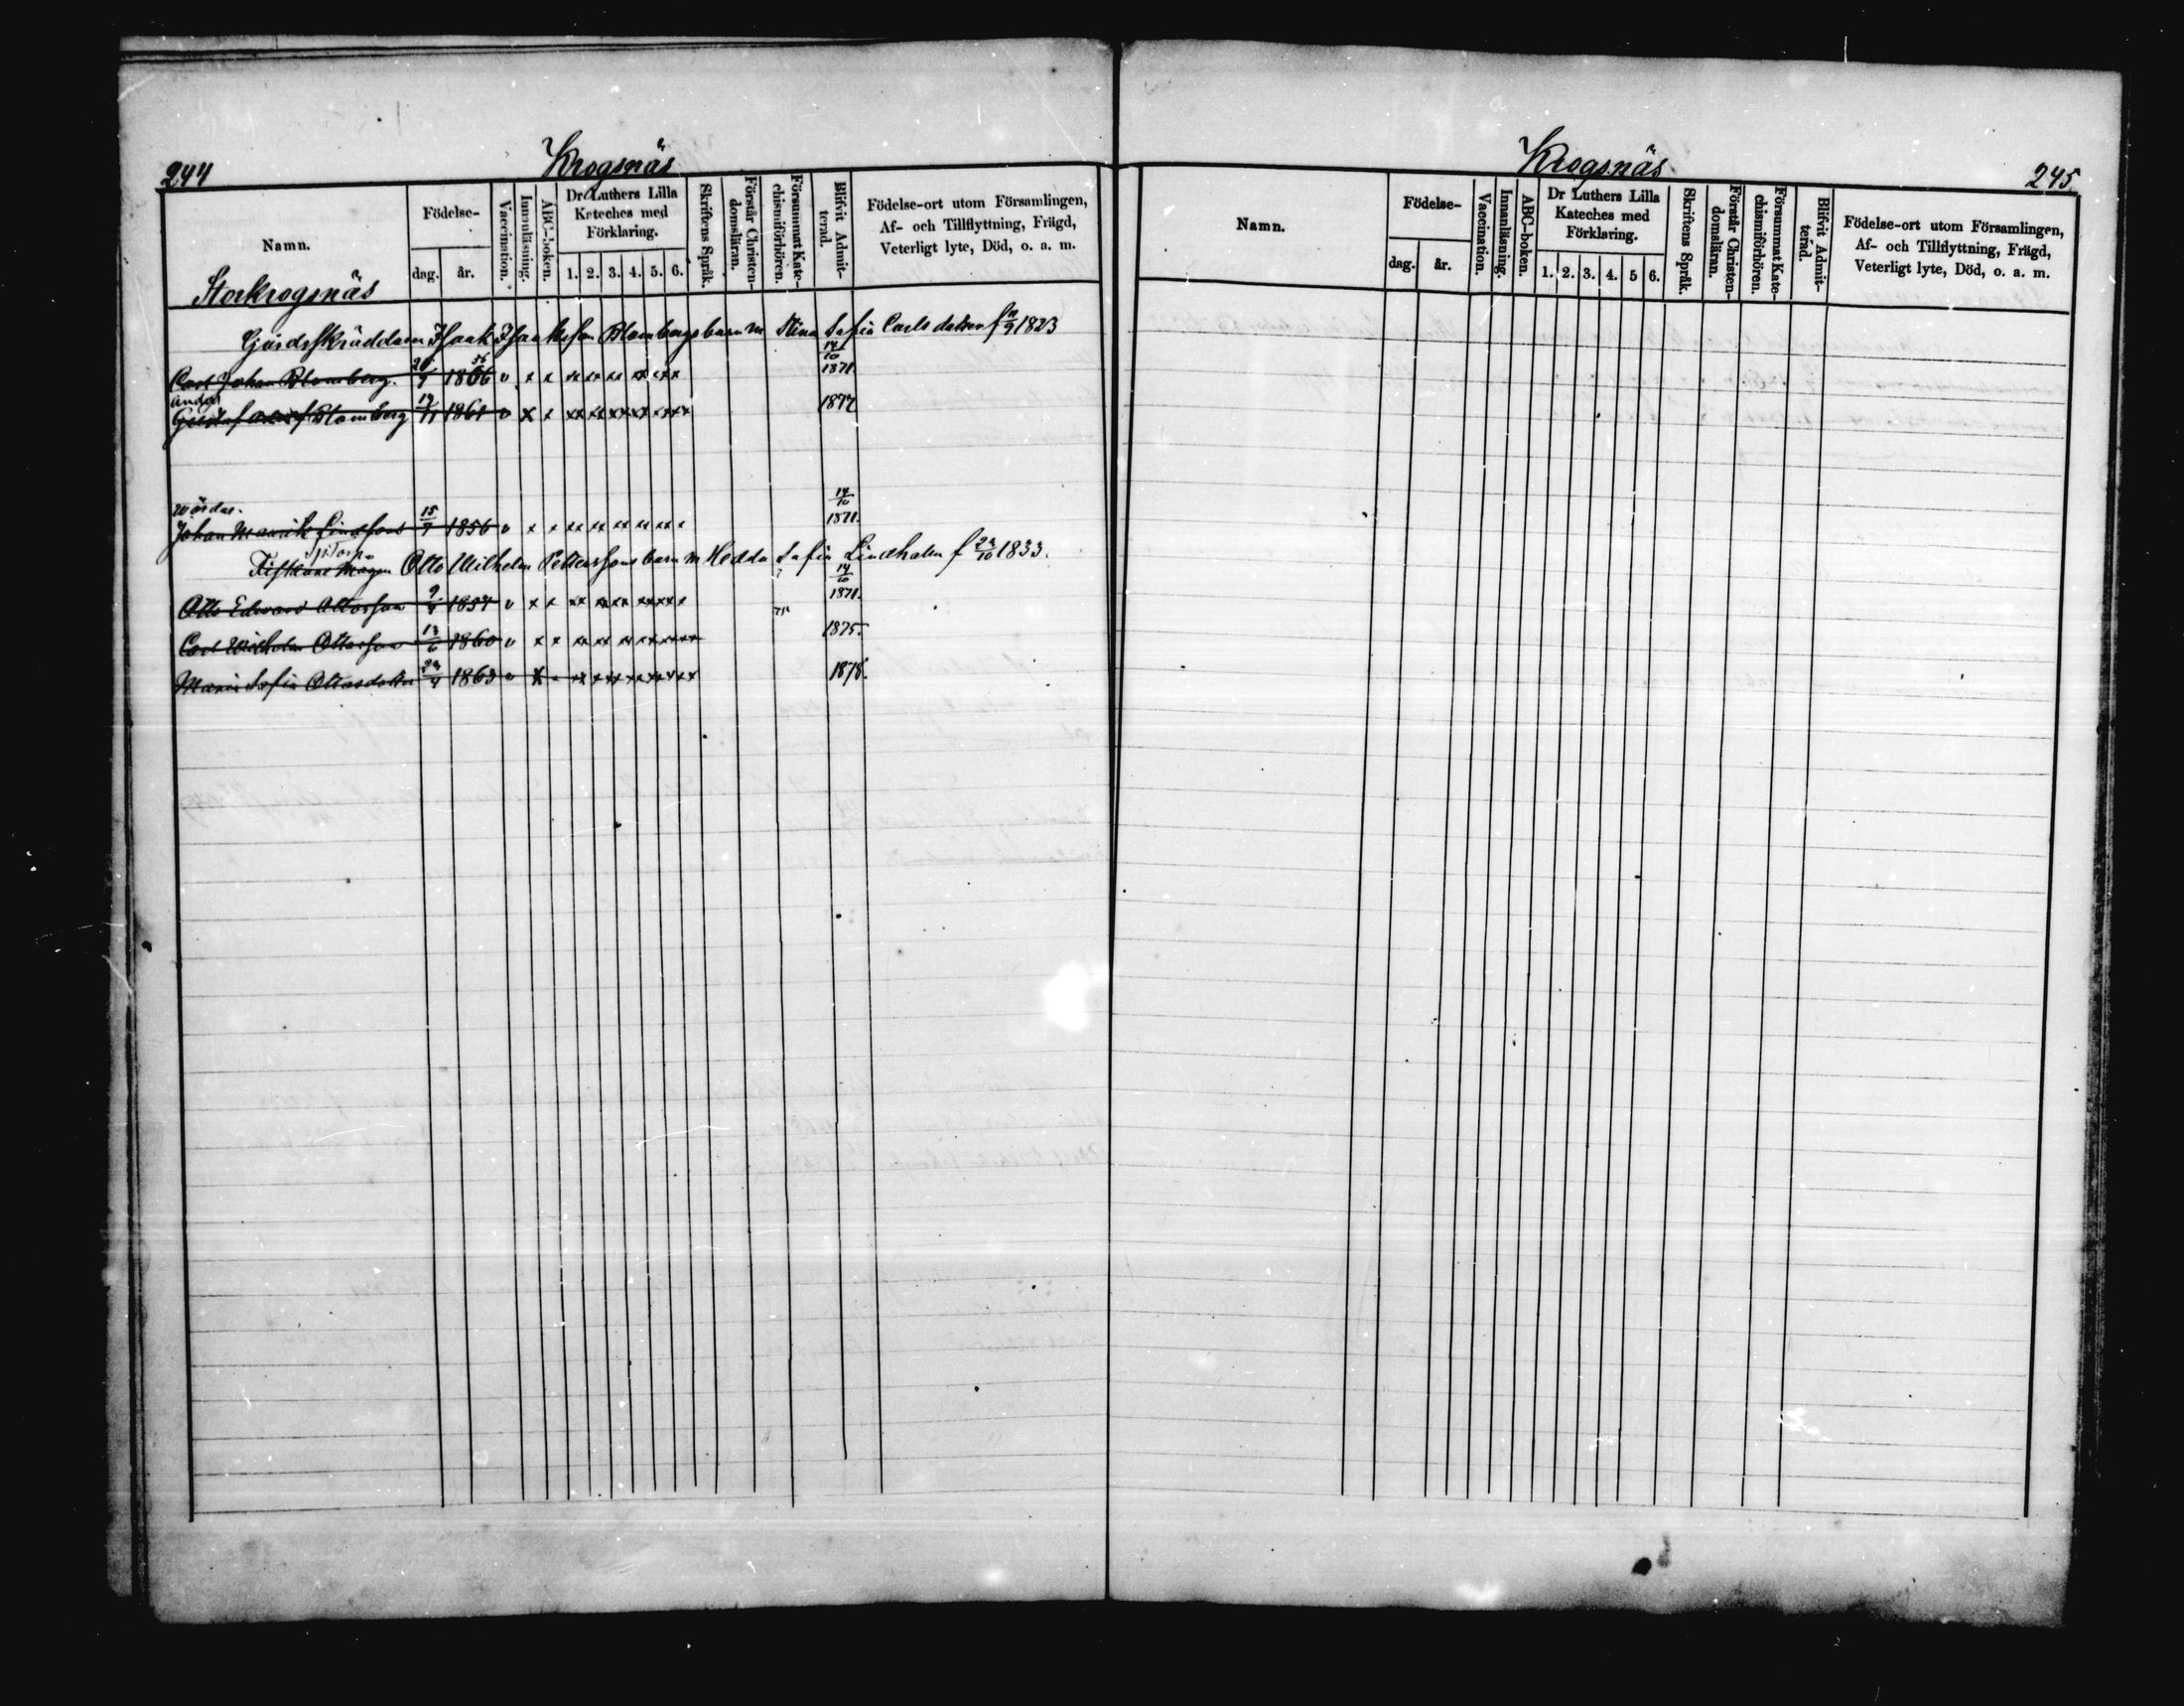 244
Krogsnäs
Namn.
Födelse-
dag.
år.
Vaccination.
Innanläsning.
ABC-boken.
Dr Luthers Lilla
Kateches med
Förklaring.
1. 2. 3. 4. 5. 6.
Skriftens Språk.
Förstår Christen-
domsläran.
Försummat Kate-
chismiförhören.
Blifvit Admit-
terad.
Födelse-ort utom Församlingen,
Af- och Tillflyttning, Frägd,
Veterligt lyte, Död, o. a. m.
Storkrogsnäs
Gårdsskräddaren Isaak Isaaksson Blombergs barn m Stina Sofia Carlsdotter f 1823
14/10
Carl Johan Blomberg. 1866 56 v x x xx xx xx xx xxx 1871.
Gustaf Blomberg 1861 v x x xx xx xx xx xxxx 1877
Wärdar. 14/10
Johan Manrik Lindfors 15/7 1856 v x x xx xx xx xx xx x 1871.
Otto Wilhelm Petterssons barn m Hedda Sofia Lindholm f 23/10 1833.
14/10
Otto Edward Ottosson 1857 v x x xx xx xx xx xx x 1871.
Carl Wilhelm Ottosson 13/6 1860 v x x xx xx xx xx xxxx 1875.
Maria Sofia Ottosdotter 1863 v x xx xx xx xx xx xx 1878.
Krogsnäs.
245
Namn.
Födelse-
dag.
år.
Vaccination.
Innanläsning.
ABC-boken.
Dr Luthers Lilla
Kateches med
Förklaring.
1. 2. 3. 4. 5 6.
Skriftens Språk.
Förstår Christen-
domsläran.
Försummat Kate-
chismiförhören.
Blifvit Admit-
terad.
Födelse-ort utom Församlingen,
Af- och Tillflyttning, Frägd,
Veterligt lyte, Död, o. a. m.